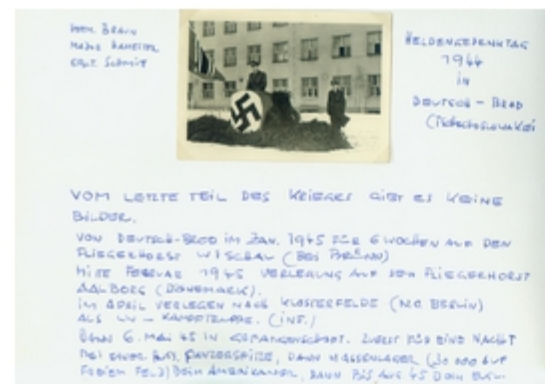 HELDENGEDENKTAG
1944
IN
DEUTSCH-BROD
(TSCHECHOSLOWAKEI
VOM LETZTE TEIL DES KRIEGES GIBT ES KEINE
BILDER.
VON DEUTSCH-BROD IM JAN. 1945 FÜR 6 WOCHEN AUF DEN
FLIEGERHORST WISCHAU (BEI BRÜNN)
MITE FEBRUAR 1945 VERLEGUNG AUF DEN FLIEGERHORST
AALBORG (DÄNEMARK).
IM APRIL VERLEGEN NACH KLOSTERFELDE (N.O. BERLIN)
ALS LW-KAMPFTRUPPE. (INF.)
DANN 6. MAI 45 IN GEFANGENSCHAFT. ZUERST FÜR EINE NACHT
BEI EINER RUS. PANZERSPITZE, DANN MASSENLAGER AUF
FREIEM FELD) BEIM AMERIKANER, DANN BIS AUG 45 BEIM